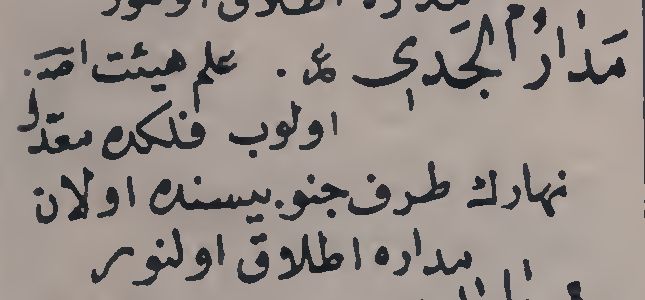 مداره اطلاق اولنور
مَدَارُ الجَدي عم . علم هيئت
اولوب فلكده معدل
نهارك طرف جنوبيسنده اولان
مداره اطلاق اولنور